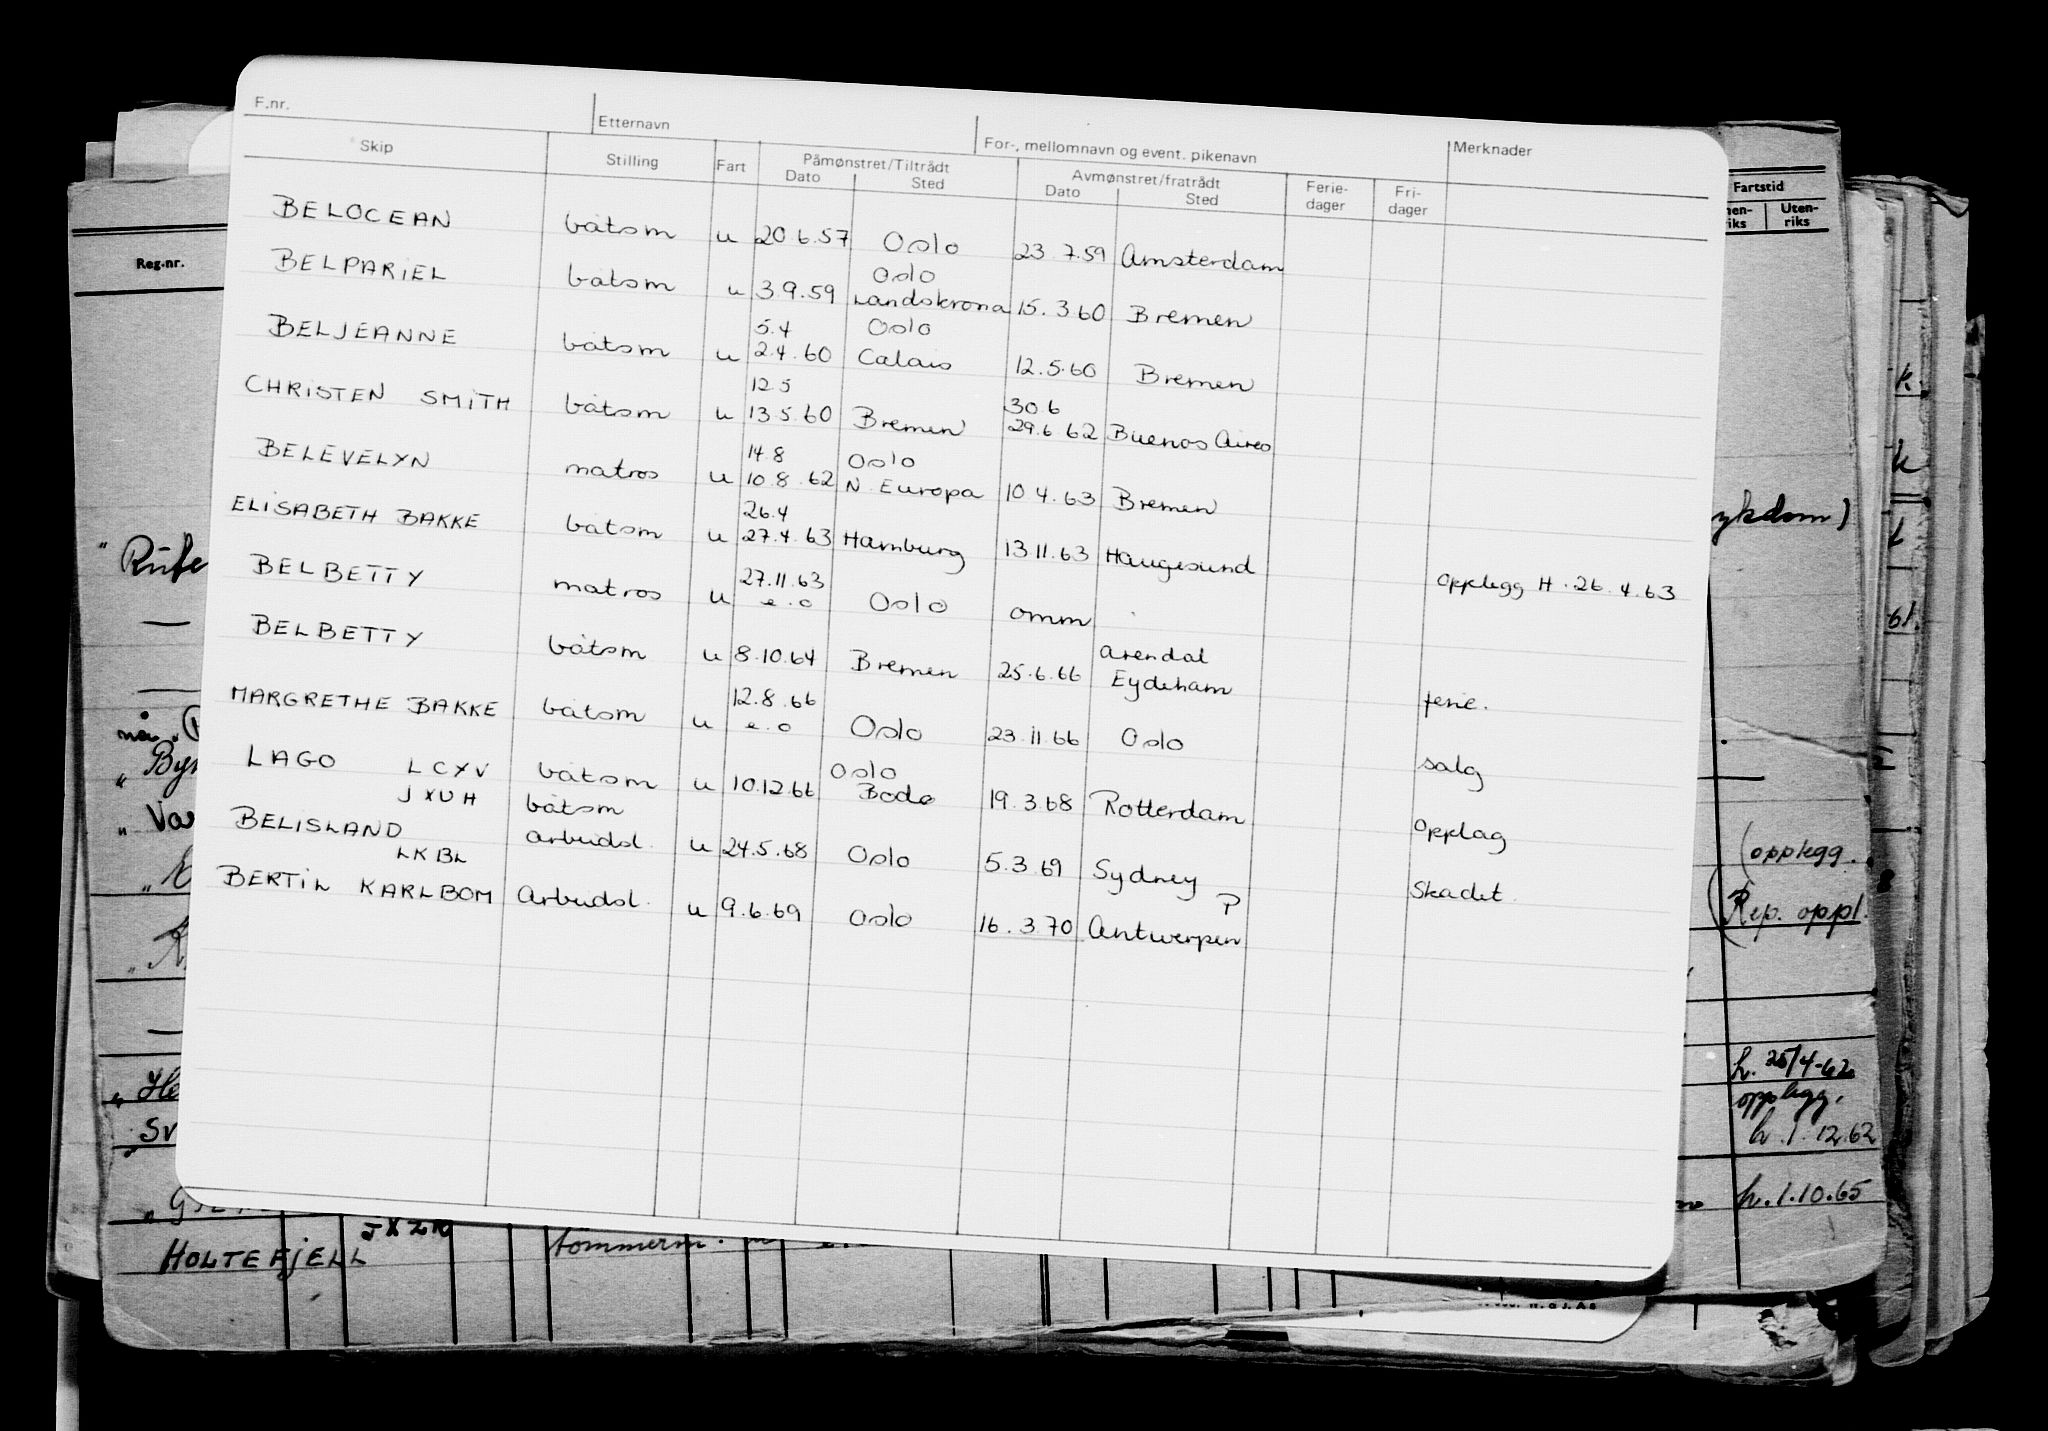 F.nr. Etternavn For-, mellomnavn og event. pikenavn
Skip Stilling Fart Påmønstret/Tiltrådt Avmønstret/fratrådt Ferie- Fri- Merknader
Dato Sted Dato Sted dager dager
BELOCEAN båtsm u 20 6.57 Oslo 23 7.59 Amsterdam
Oslo
BELPARIEL båtsm u 3.9.59 Landskrona 15.3 60 Bremen
5.4 Oslo
BELJEANNE båtsm u 2.4.60 Calais 12.5.60 Bremen
12 5 30 6
CHRISTEN SMITH båtsm u 13 5.60 Bremen 29.6 62 Buenos Aires
14.8 Oslo
BELEVELYN matros u 10.8.62 N. Europa 10 4.63 Bremen
26.4
ELISABETH BAKKE båtsm u 27.4.63 Hamburg 13 11.63 Haugesund opplegg H. 26.4.63
27.11.63
BELBETTY matros u e.o Oslo omm
Arendal
BELBETTY båtsm u 8.10.64 Bremen 25.6.66 Eydeham ferie.
12.8.66
MARGRETHE BAKKE båtsm u e.o Oslo 23.11.66 Oslo salg
Oslo
LAGO LCXV båtsm u 10.12.66 Bodø 19.3.68 Rotterdam opplag
JXUH båtsm
BELISLAND arbeidsl. u 24.5.68 Oslo 5.3.69 Sydney skadet.
LKBL P
BERTIL KARLBOM Arbeidsl. u 9.6.69 Oslo 16.3.70 Antwerpen
Fartstid
Uten-
riks
Reg.nr.
ykdom)
opplegg.
Rep. oppl.
h. 25/4-62
opplegg.
h.1.12.62
h.1.10.65
HOLTEFJELL tømmerm.